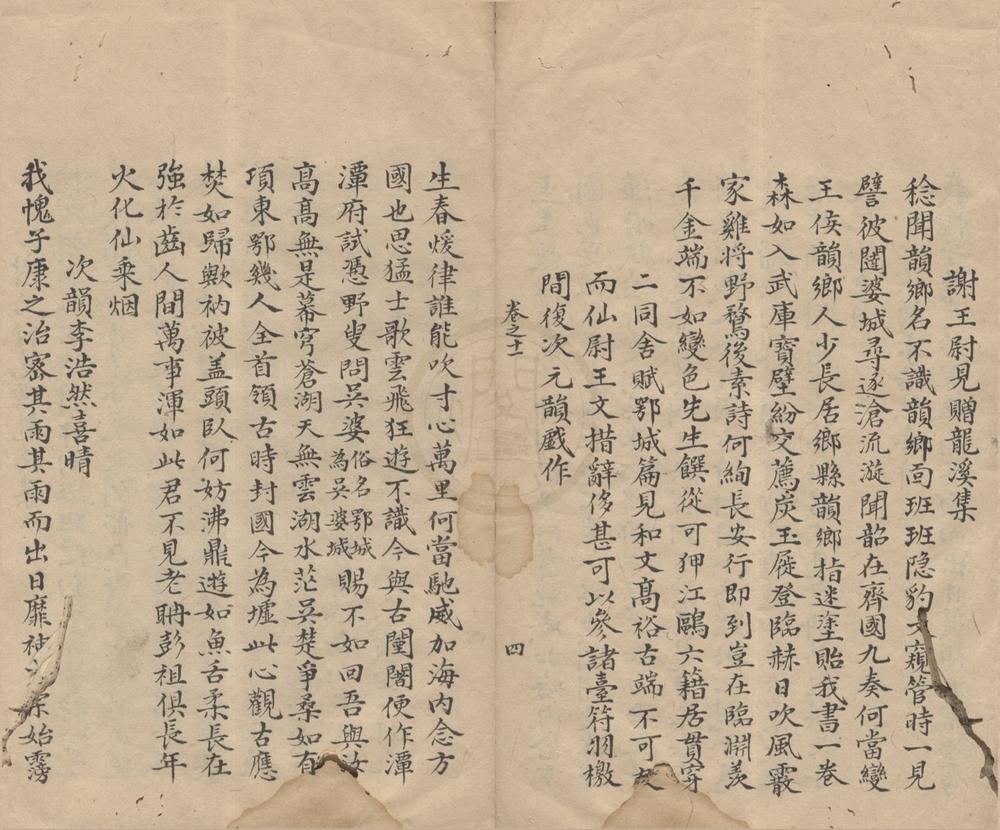 謝王尉見贈龍溪集
稔聞韻鄉名不識韻鄉面班班隐豹文窺管時一見
譬彼闥婆城尋逐滄流漩聞韶在齊國九奏何當變
王侯韻鄉人少長居鄉縣韻鄉指迷塗貽我書一卷
森如入武庫寳璧紛交薦炭玉屣登臨赫日吹風霰
家雞將野鶩後素詩何絢長安行即到豈在臨淵羨
千金端不如變色先生饌從可狎江鷗六籍居貫穿
二同舍賦鄂城篇見和文髙裕古端不可
而仙尉王文措辭侈甚可以參諸臺符羽檄
間復次元韻戲作
卷之十一
四
生春煖律誰能吹寸心萬里何當馳威加海内念方
國也思猛士歌雲飛狂遊不識今與古闉闍便作潭
潭府試憑野叟問吳婆俗名鄂城為吳婆城賜不如回吾與汝
髙髙無是幕穹蒼湖天無雲湖水茫吳楚爭桑如有
項東鄂幾人全首領古時封國今為墟此心觀古應
焚如歸歟衲被盖頭臥何妨沸鼎遊如魚舌柔長在
強於齒人間萬事渾如此君不見老聃彭祖俱長年
火化仙乘烟
次韻李浩然喜晴
我愧子康之治密其雨其雨而出日靡神始霶